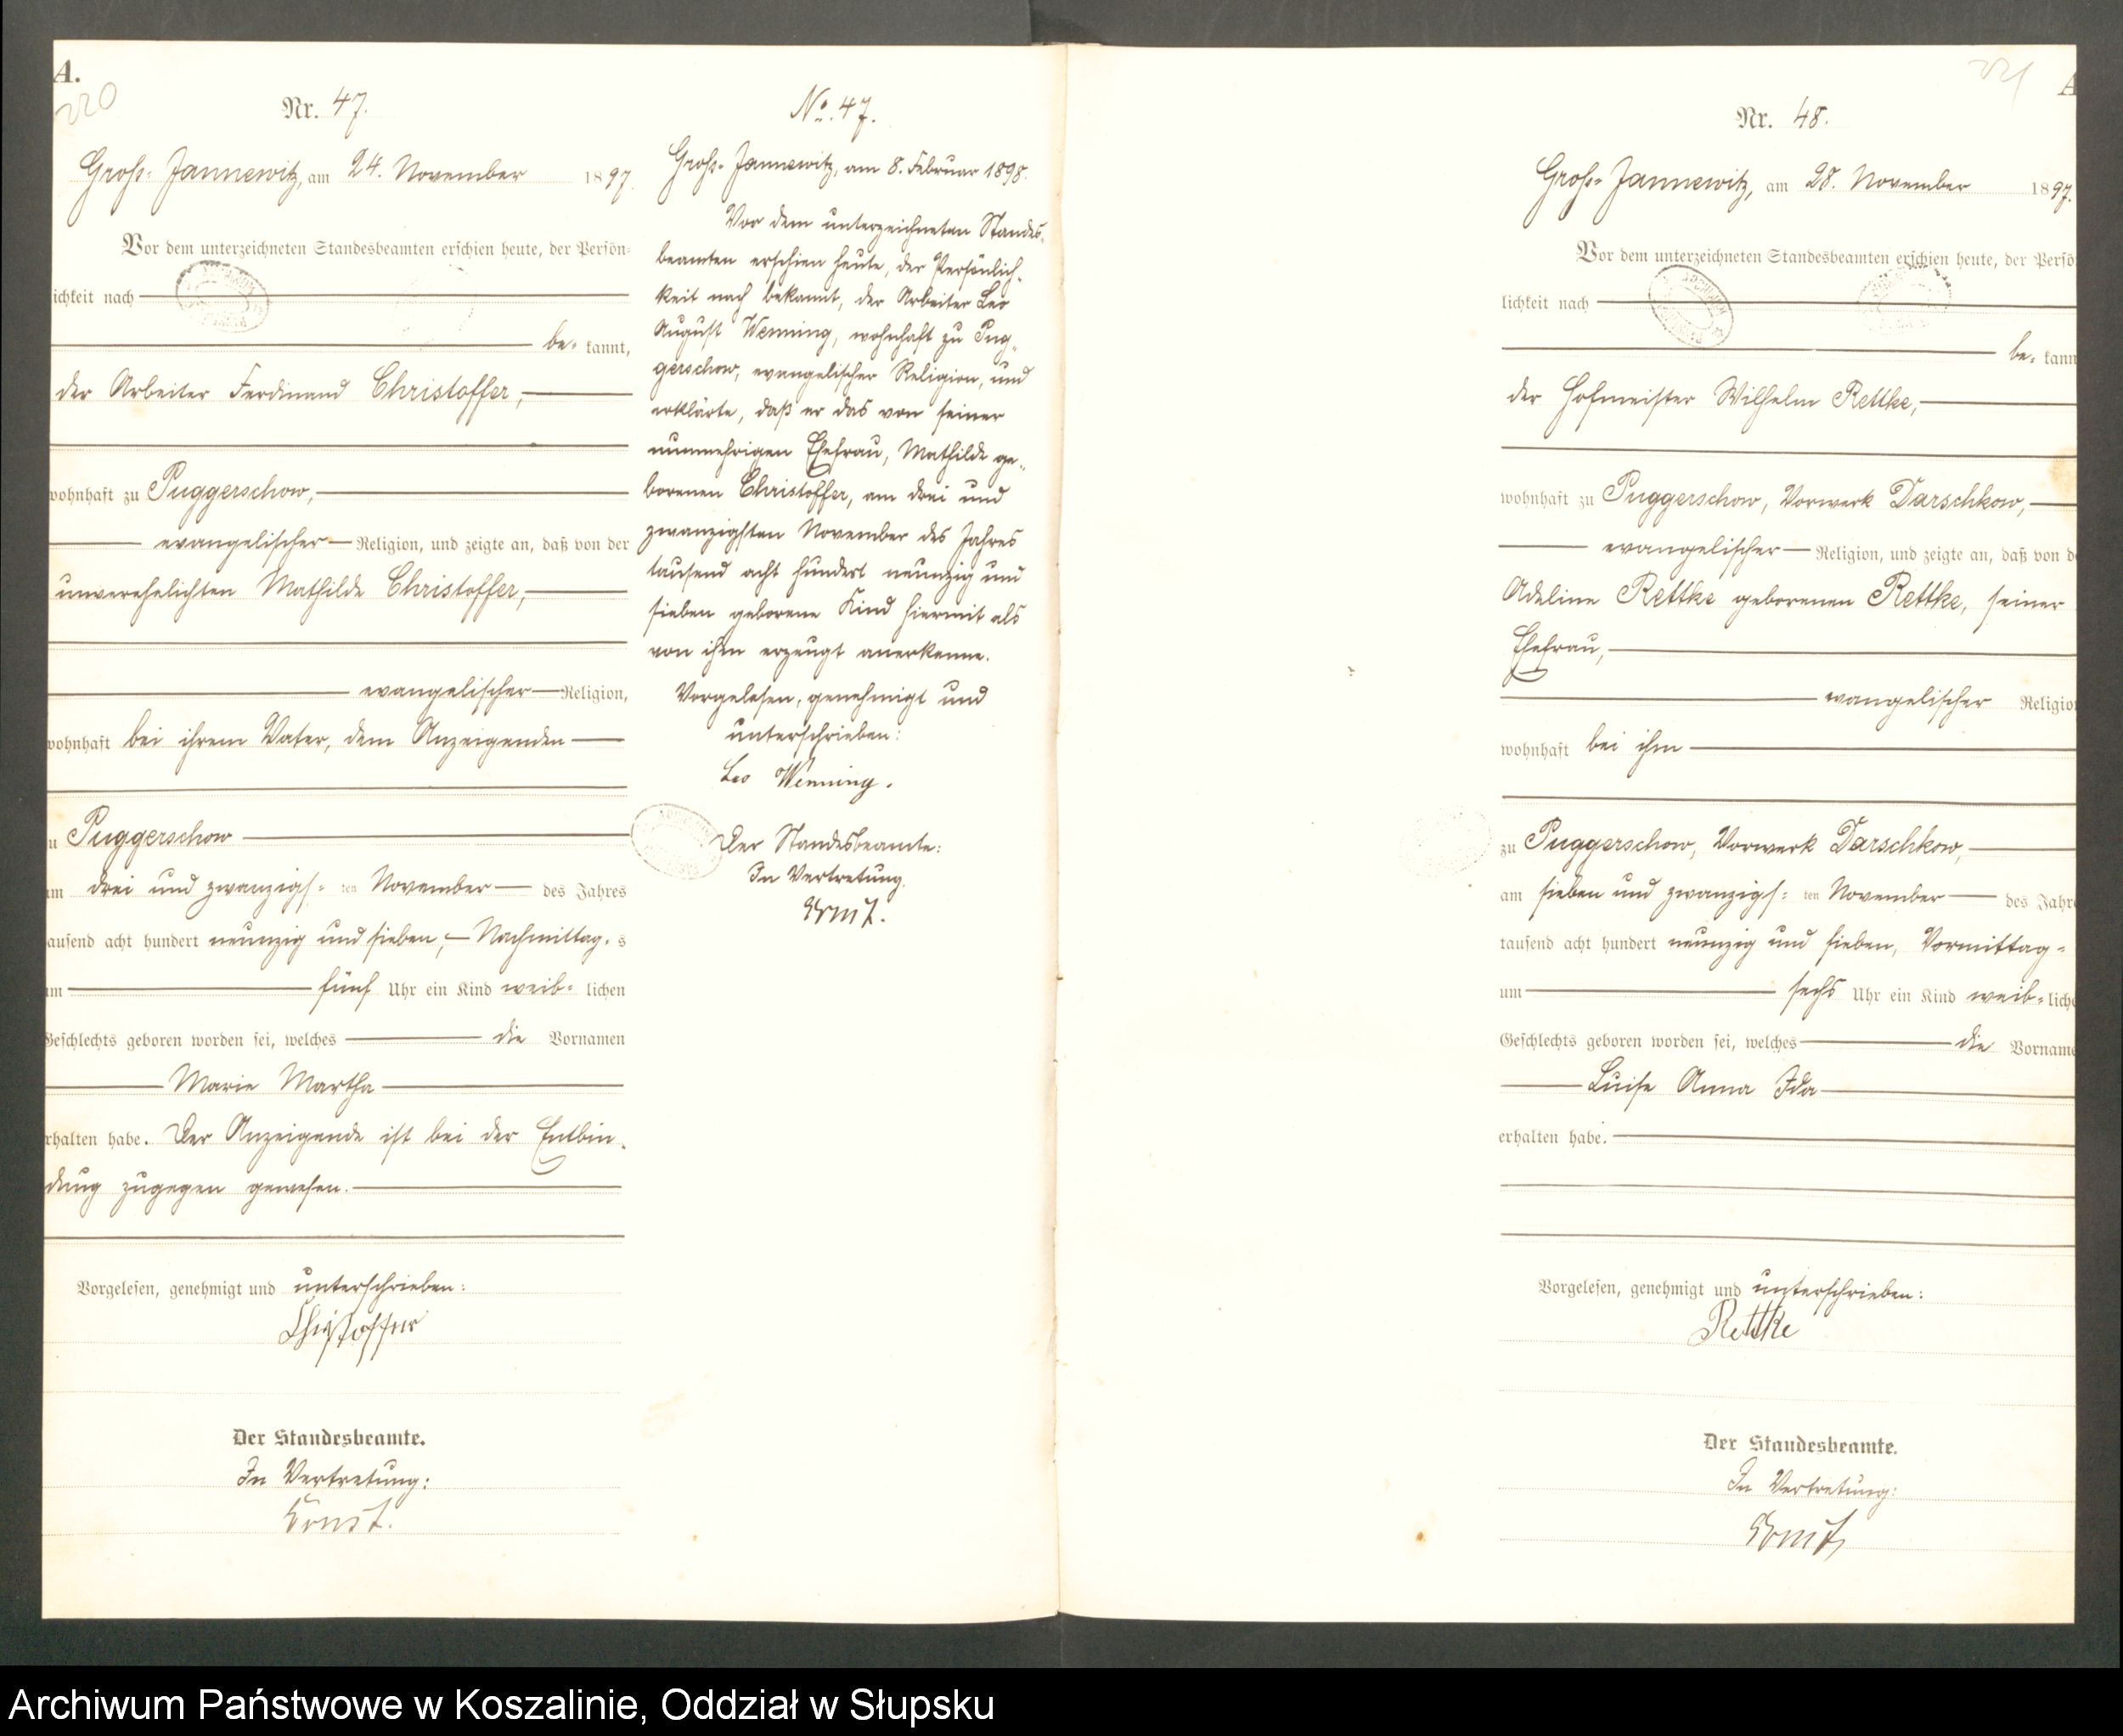 A.
220
Nr. 47.
Groß-Jannewitz, am 24. November 1897.
Vor dem unterzeichneten Standesbeamten erschien heute, der Persön-
lichkeit nach
be- kannt,
der Arbeiter Ferdinand Christoffer,
wohnhaft zu Puggerschow,
evangelischer Religion, und zeigte an, daß von der
unverehelichten Mathilde Christoffer,
evangelischer Religion,
wohnhaft bei ihrem Vater, dem Anzeigenden
zu Puggerschow
am drei und zwanzigs- ten November des Jahres
tausend acht hundert neunzig und sieben, Nachmittag- s
um fünf Uhr ein Kind weib- lichen
Geschlechts geboren worden sei, welches die Vornamen
Marie Martha
erhalten habe. Der Anzeigende ist bei der Entbin-
dung zugegen gewesen.
Vorgelesen, genehmigt und unterschrieben:
Christoffer
Der Standesbeamte.
In Vertretung:
Ernst.
No. 47.
Groß-Jannewitz, am 8. Februar 1898.
Vor dem unterzeichneten Standes-
beamten erschien heute, der Persönlich-
keit nach bekannt, der Arbeiter Leo
August Wenning, wohnhaft zu Pug-
gerschow, evangelischer Religion, und
erklärte, daß er das von seiner
nunmehrigen Ehefrau, Mathilde ge-
borenen Christoffer, am drei und
zwanzigsten November des Jahres
tausend acht hundert neunzig und
sieben geborene Kind hiermit als
von ihm erzeugt anerkenne.
Vorgelesen, genehmigt und
unterschrieben:
Leo Wenning.
Der Standesbeamte:
In Vertretung.
Ernst.
221
A
Nr. 48.
Groß-Jannewitz, am 28. November 1897.
Vor dem unterzeichneten Standesbeamten erschien heute, der Persö
lichkeit nach
be- kann
der Hofmeister Wilhelm Rettke,
wohnhaft zu Puggerschow, Vorwerk Darschkow,
evangelischer Religion, und zeigte an, daß von d
Adeline Rettke geborenen Rettke, seiner
Ehefrau,
evangelischer Religio
wohnhaft bei ihm
zu Puggerschow, Vorwerk Darschkow,
am sieben und zwanzigs- ten November des Jahre
tausend acht hundert neunzig und sieben, Vormittag-
um sechs Uhr ein Kind weib- liche
Geschlechts geboren worden sei, welches die Vorname
Luise Anna Ida
erhalten habe.
Vorgelesen, genehmigt und unterschrieben:
Rettke
Der Standesbeamte.
In Vertretung:
Ernst
Archiwum Państwowe w Koszalinie, Oddział w Słupsku